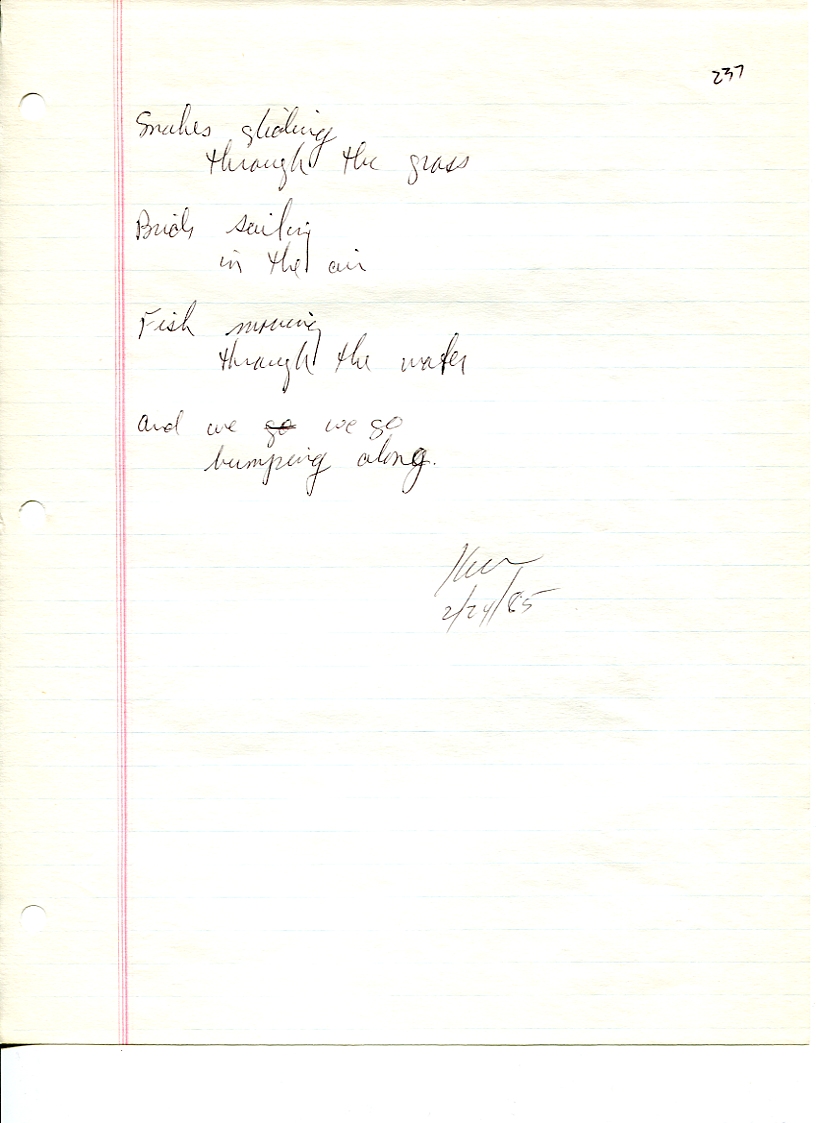 237
Snakes gliding
through the grass
Birds sailing
in the air
Fish moving
through the water
and we go we go
bumping along.
2/24/85